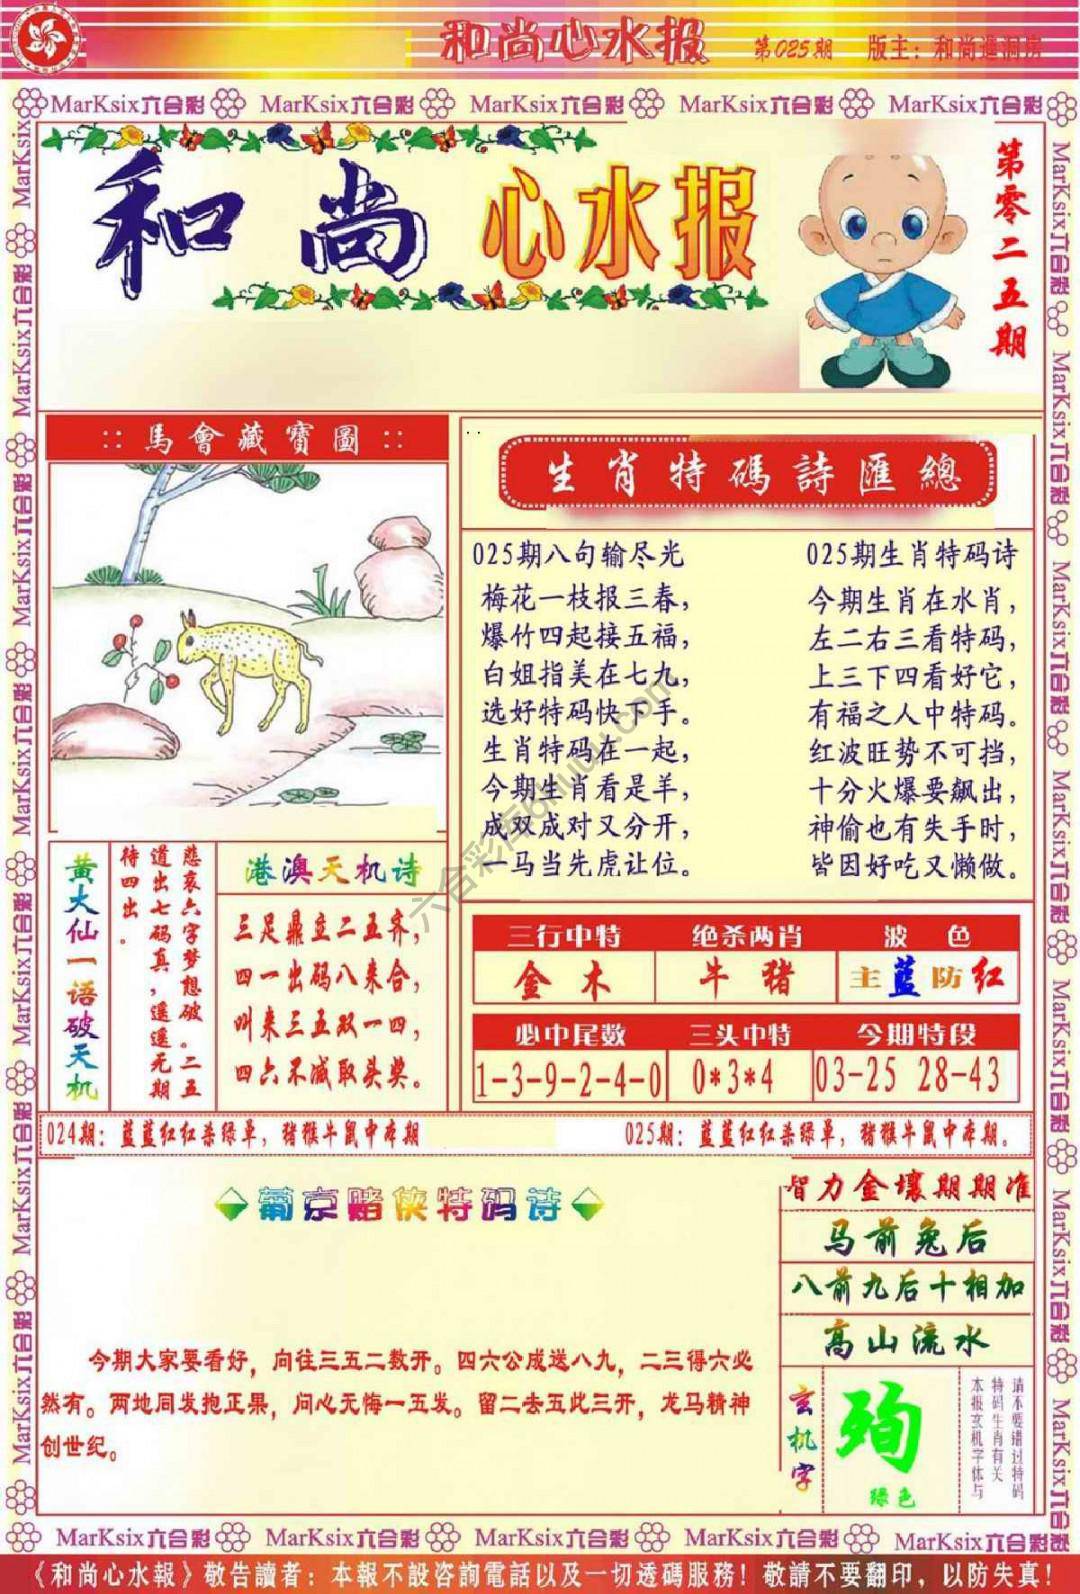 和尚心水报 第025期 版主：和尚進洞房
MarKsix六合彩 MarKsix六合彩 MarKsix六合彩 MarKsix六合彩 MarKsix六合彩
和尚心水报
第零二五期
::馬會藏寶圖::
生肖特碼詩匯總
025期八句输尽光
梅花一枝报三春，
爆竹四起接五福，
白姐指美在七九，
选好特码快下手。
生肖特码在一起，
今期生肖看是羊，
成双成对又分开，
一马当先虎让位。
025期生肖特码诗
今期生肖在水肖，
左二右三看特码，
上三下四看好它，
有福之人中特码。
红波旺势不可挡，
十分火爆要飙出，
神偷也有失手时，
皆因好吃又懒做。
黄大仙一语破天机
慈哀六字梦想破。二五
道出七码真，遥遥无期
待四出。
港澳天机诗
三足鼎立二五齐，
四一出码八来合，
叫来三五双一四，
四六不减取头奖。
三行中特 绝杀两肖 波色
金木 牛猪 主蓝防红
必中尾数 三头中特 今期特段
1-3-9-2-4-0 0*3*4 03-25 28-43
024期：蓝蓝红红杀绿单，猪猴牛鼠中本期
025期：蓝蓝红红杀绿单，猪猴牛鼠中本期。
葡京赌侠特码诗
今期大家要看好，向往三五二数开。四六公成送八九，二三得六必
然有。两地同发抱正果，问心无悔一五发。留二去五此三开，龙马精神
创世纪。
智力金壤期期准
马前兔后
八前九后十相加
高山流水
玄机字
殉
绿色
请不要错过特码
特码生肖有关
本报玄机字体与
六合彩库6huu.com
MarKsix六合彩 MarKsix六合彩 MarKsix六合彩 MarKsix六合彩 MarKsix六合彩
《和尚心水報》敬告讀者：本報不設咨詢電話以及一切透碼服務！敬請不要翻印，以防失真！